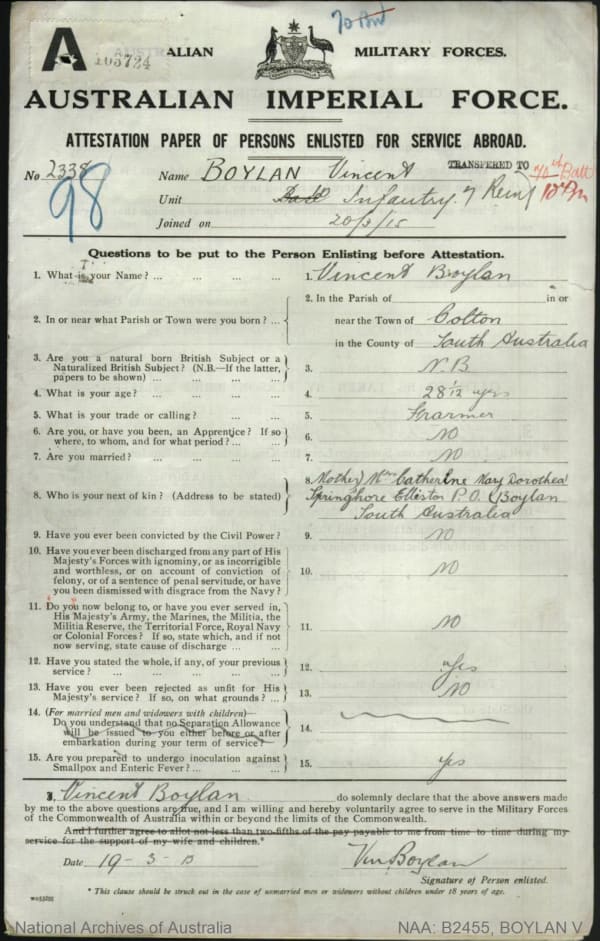 To Bn
A
103724
ALIAN MILITARY FORCES.
AUSTRALIAN IMPERIAL FORCE.
ATTESTATION PAPER OF PERSONS ENLISTED FOR SERVICE ABROAD.
No. 2338 Name BOYLAN Vincent TRANSFERED TO
98
Unit Infantry 7 Reinf
10th Batt
Joined on 20/3/15
Questions to be put to the Person Enlisting before Attestation.
1. What is your Name? ... 1. Vincent Boylan
2. In or near what Parish or Town were you born? ... 2. In the Parish of in or
near the Town of Colton
in the County of South Australia
3. Are you a natural born British Subject or a
Naturalized British Subject? (N.B.—If the latter,
papers to be shown) ... 3. N.B
4. What is your age? ... 4. 28 1/12 yrs
5. What is your trade or calling? ... 5. Farmer
6. Are you, or have you been, an Apprentice? If so
where, to whom, and for what period? ... 6. NO
7. Are you married? ... 7. NO
8. Who is your next of kin? (Address to be stated) 8. Mother Mrs Catherine Mary Dorothea
Elliston P.O. Boylan
South Australia
9. Have you ever been convicted by the Civil Power? 9. NO
10. Have you ever been discharged from any part of His
Majesty's Forces with ignominy, or as incorrigible
and worthless, or on account of conviction of
felony, or of a sentence of penal servitude, or have
you been dismissed with disgrace from the Navy? 10. NO
11. Do you now belong to, or have you ever served in,
His Majesty's Army, the Marines, the Militia, the
Militia Reserve, the Territorial Force, Royal Navy
or Colonial Forces? If so, state which, and if not
now serving, state cause of discharge ... 11. NO
12. Have you stated the whole, if any, of your previous
service? ... 12. Yes
13. Have you ever been rejected as unfit for His
Majesty's service? If so, on what grounds? ... 13. NO
14. (For married men and widowers with children)—
Do you understand that no Separation Allowance
will be issued to you either before or after
embarkation during your term of service? 14.
15. Are you prepared to undergo inoculation against
Smallpox and Enteric Fever? ... 15. Yes
I, Vincent Boylan do solemnly declare that the above answers made
by me to the above questions are true, and I am willing and hereby voluntarily agree to serve in the Military Forces
of the Commonwealth of Australia within or beyond the limits of the Commonwealth.
And I further agree to allot not less than two-fifths of the pay payable to me from time to time during my
service for the support of my wife and children.*
Date 19-3-15 Vin Boylan
Signature of Person enlisted.
* This clause should be struck out in the case of unmarried men or widowers without children under 18 years of age.
National Archives of Australia NAA: B2455, BOYLAN V